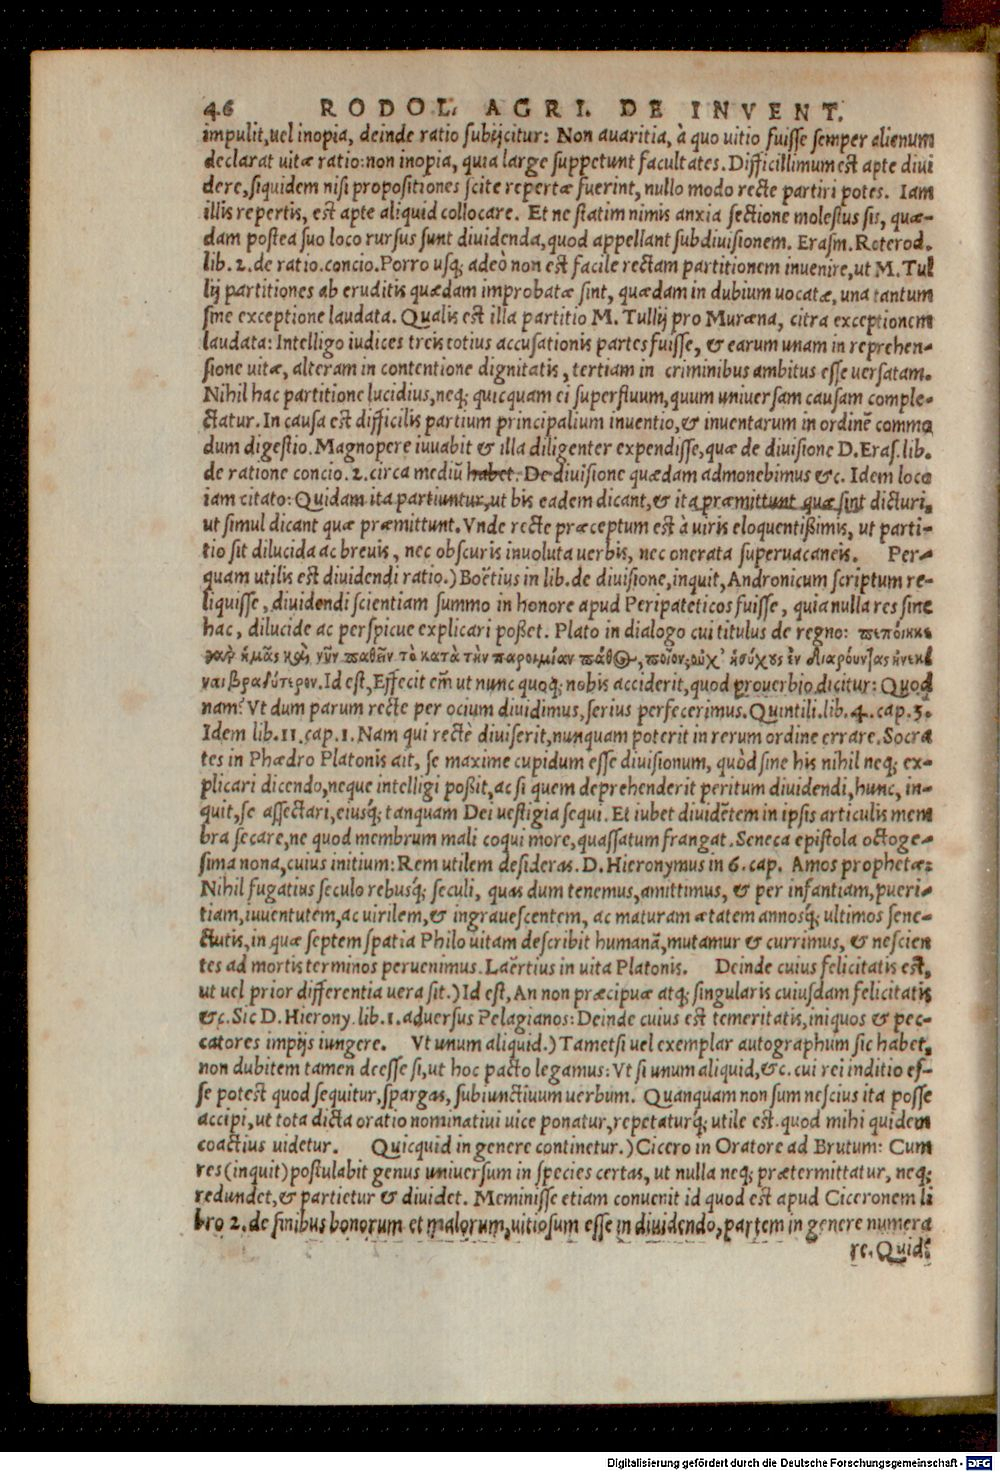 46 RODOL. AGRI. DE INVENT.
impulit, uel inopia, deinde ratio subijcitur: Non auaritia, à quo uitio fuisse semper alienum
declarat uitæ ratio: non inopia, quia large suppetunt facultates. Difficillimum est apte diui
dere, siquidem nisi propositiones scite repertæ fuerint, nullo modo recte partiri potes. Iam
illis repertis, est apte aliquid collocare. Et ne statim nimis anxia sectione molestus sis, quæ-
dam postea suo loco rursus sunt diuidenda, quod appellant subdiuisionem. Erasm. Roterod.
lib. 2. de ratio. concio. Porro usq; adeò non est facile rectam partitionem inuenire, ut M. Tul
lij partitiones ab eruditis quædam improbatæ sint, quædam in dubium uocatæ, una tantum
sine exceptione laudata. Qualis est illa partitio M. Tullij pro Muræna, citra exceptionem
laudata: Intelligo iudices treis totius accusationis partes fuisse, & earum unam in reprehen-
sione uitæ, alteram in contentione dignitatis, tertiam in criminibus ambitus esse uersatam.
Nihil hac partitione lucidius, neq; quicquam ei superfluum, quum uniuersam causam comple-
ctatur. In causa est difficilis partium principalium inuentio, & inuentarum in ordinē commo
dum digestio. Magnopere iuuabit & illa diligenter expendisse, quæ de diuisione D. Eras. lib.
de ratione concio. 2. circa mediū habet. De diuisione quædam admonebimus &c. Idem loco
iam citato: Quidam ita partiuntur, ut bis eadem dicant, & ita præmittunt quæ sint dicturi,
ut simul dicant quæ præmittunt. Vnde recte præceptum est à uiris eloquentißimis, ut parti-
tio sit dilucida ac breuis, nec obscuris inuoluta uerbis, nec onerata superuacaneis. Per-
quam utilis est diuidendi ratio.) Boëtius in lib. de diuisione, inquit, Andronicum scriptum re-
liquisse, diuidendi scientiam summo in honore apud Peripateticos fuisse, quia nulla res sine
hac, dilucide ac perspicue explicari poßet. Plato in dialogo cui titulus de regno: πεποίηκε
γαρ ἡμᾶς καὶ νῦν παθεῖν τὸ κατὰ τὴν παροιμίαν πάθος, ποῖον; οὐχ' ἡσύχους ἐν διαροῦντας ἠνεκέ
ναι βραδύτερον. Id est, Effecit em̄ ut nunc quoq; nobis acciderit, quod prouerbio dicitur: Quod
nam? Vt dum parum recte per ocium diuidimus, serius perfecerimus. Quintili. lib. 4. cap. 5.
Idem lib. 11. cap. 1. Nam qui rectè diuiserit, nunquam poterit in rerum ordine errare. Socra
tes in Phædro Platonis ait, se maxime cupidum esse diuisionum, quòd sine his nihil neq; ex-
plicari dicendo, neque intelligi poßit, ac si quem deprehenderit peritum diuidendi, hunc, in-
quit, se assectari, eiusq́; tanquam Dei uestigia sequi. Et iubet diuidētem in ipsis articulis mem
bra secare, ne quod membrum mali coqui more, quassatum frangat. Seneca epistola octoge-
sima nona, cuius initium: Rem utilem desideras. D. Hieronymus in 6. cap. Amos prophetæ:
Nihil fugatius seculo rebusq́; seculi, quas dum tenemus, amittimus, & per infantiam, pueri-
tiam, iuuentutem, ac uirilem, & ingrauescentem, ac maturam ætatem annosq́; ultimos sene-
ctutis, in quæ septem spatia Philo uitam describit humanā, mutamur & currimus, & nescien
tes ad mortis terminos peruenimus. Laërtius in uita Platonis. Deinde cuius felicitatis est,
ut uel prior differentia uera sit.) Id est, An non præcipuæ atq; singularis cuiusdam felicitatis
&c. Sic D. Hierony. lib. 1. aduersus Pelagianos: Deinde cuius est temeritatis, iniquos & pec-
catores impijs iungere. Vt unum aliquid.) Tametsi uel exemplar autographum sic habet,
non dubitem tamen deesse si, ut hoc pacto legamus: Vt si unum aliquid, &c. cui rei inditio es-
se potest quod sequitur, spargas, subiunctiuum uerbum. Quanquam non sum nescius ita posse
accipi, ut tota dicta oratio nominatiui uice ponatur, repetaturq́; utile est. quod mihi quidem
coactius uidetur. Quicquid in genere continetur.) Cicero in Oratore ad Brutum: Cum
res (inquit) postulabit genus uniuersum in species certas, ut nulla neq; prætermittatur, neq;
redundet, & partietur & diuidet. Meminisse etiam conuenit id quod est apud Ciceronem li
bro 2. de finibus bonorum et malorum, uitiosum esse in diuidendo, partem in genere numera
re. Quid:
Digitalisierung gefördert durch die Deutsche Forschungsgemeinschaft - DFG